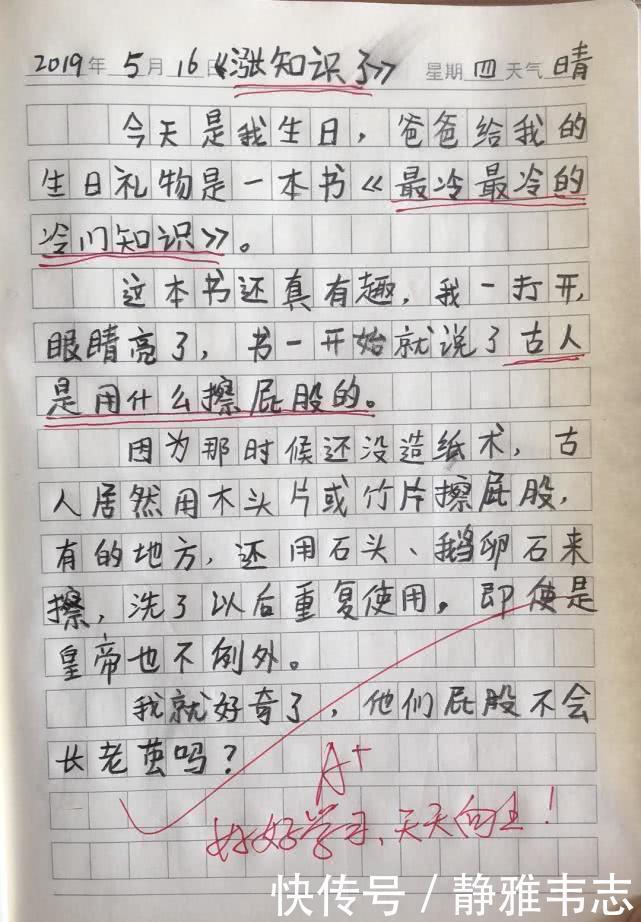 2019年 5月 16日《涨知识了》 星期 四 天气 晴
今天是我生日，爸爸给我的
生日礼物是一本书《最冷最冷的
冷门知识》。
这本书还真有趣，我一打开，
眼睛亮了，书一开始就说了古人
是用什么擦屁股的。
因为那时候还没造纸术，古
人居然用木头片或竹片擦屁股，
有的地方，还用石头、鹅卵石来
擦，洗了以后重复使用。即使是
皇帝也不例外。
我就好奇了，他们屁股不会
长老茧吗？
A+
好好学习、天天向上！
快传号 / 静雅韦志